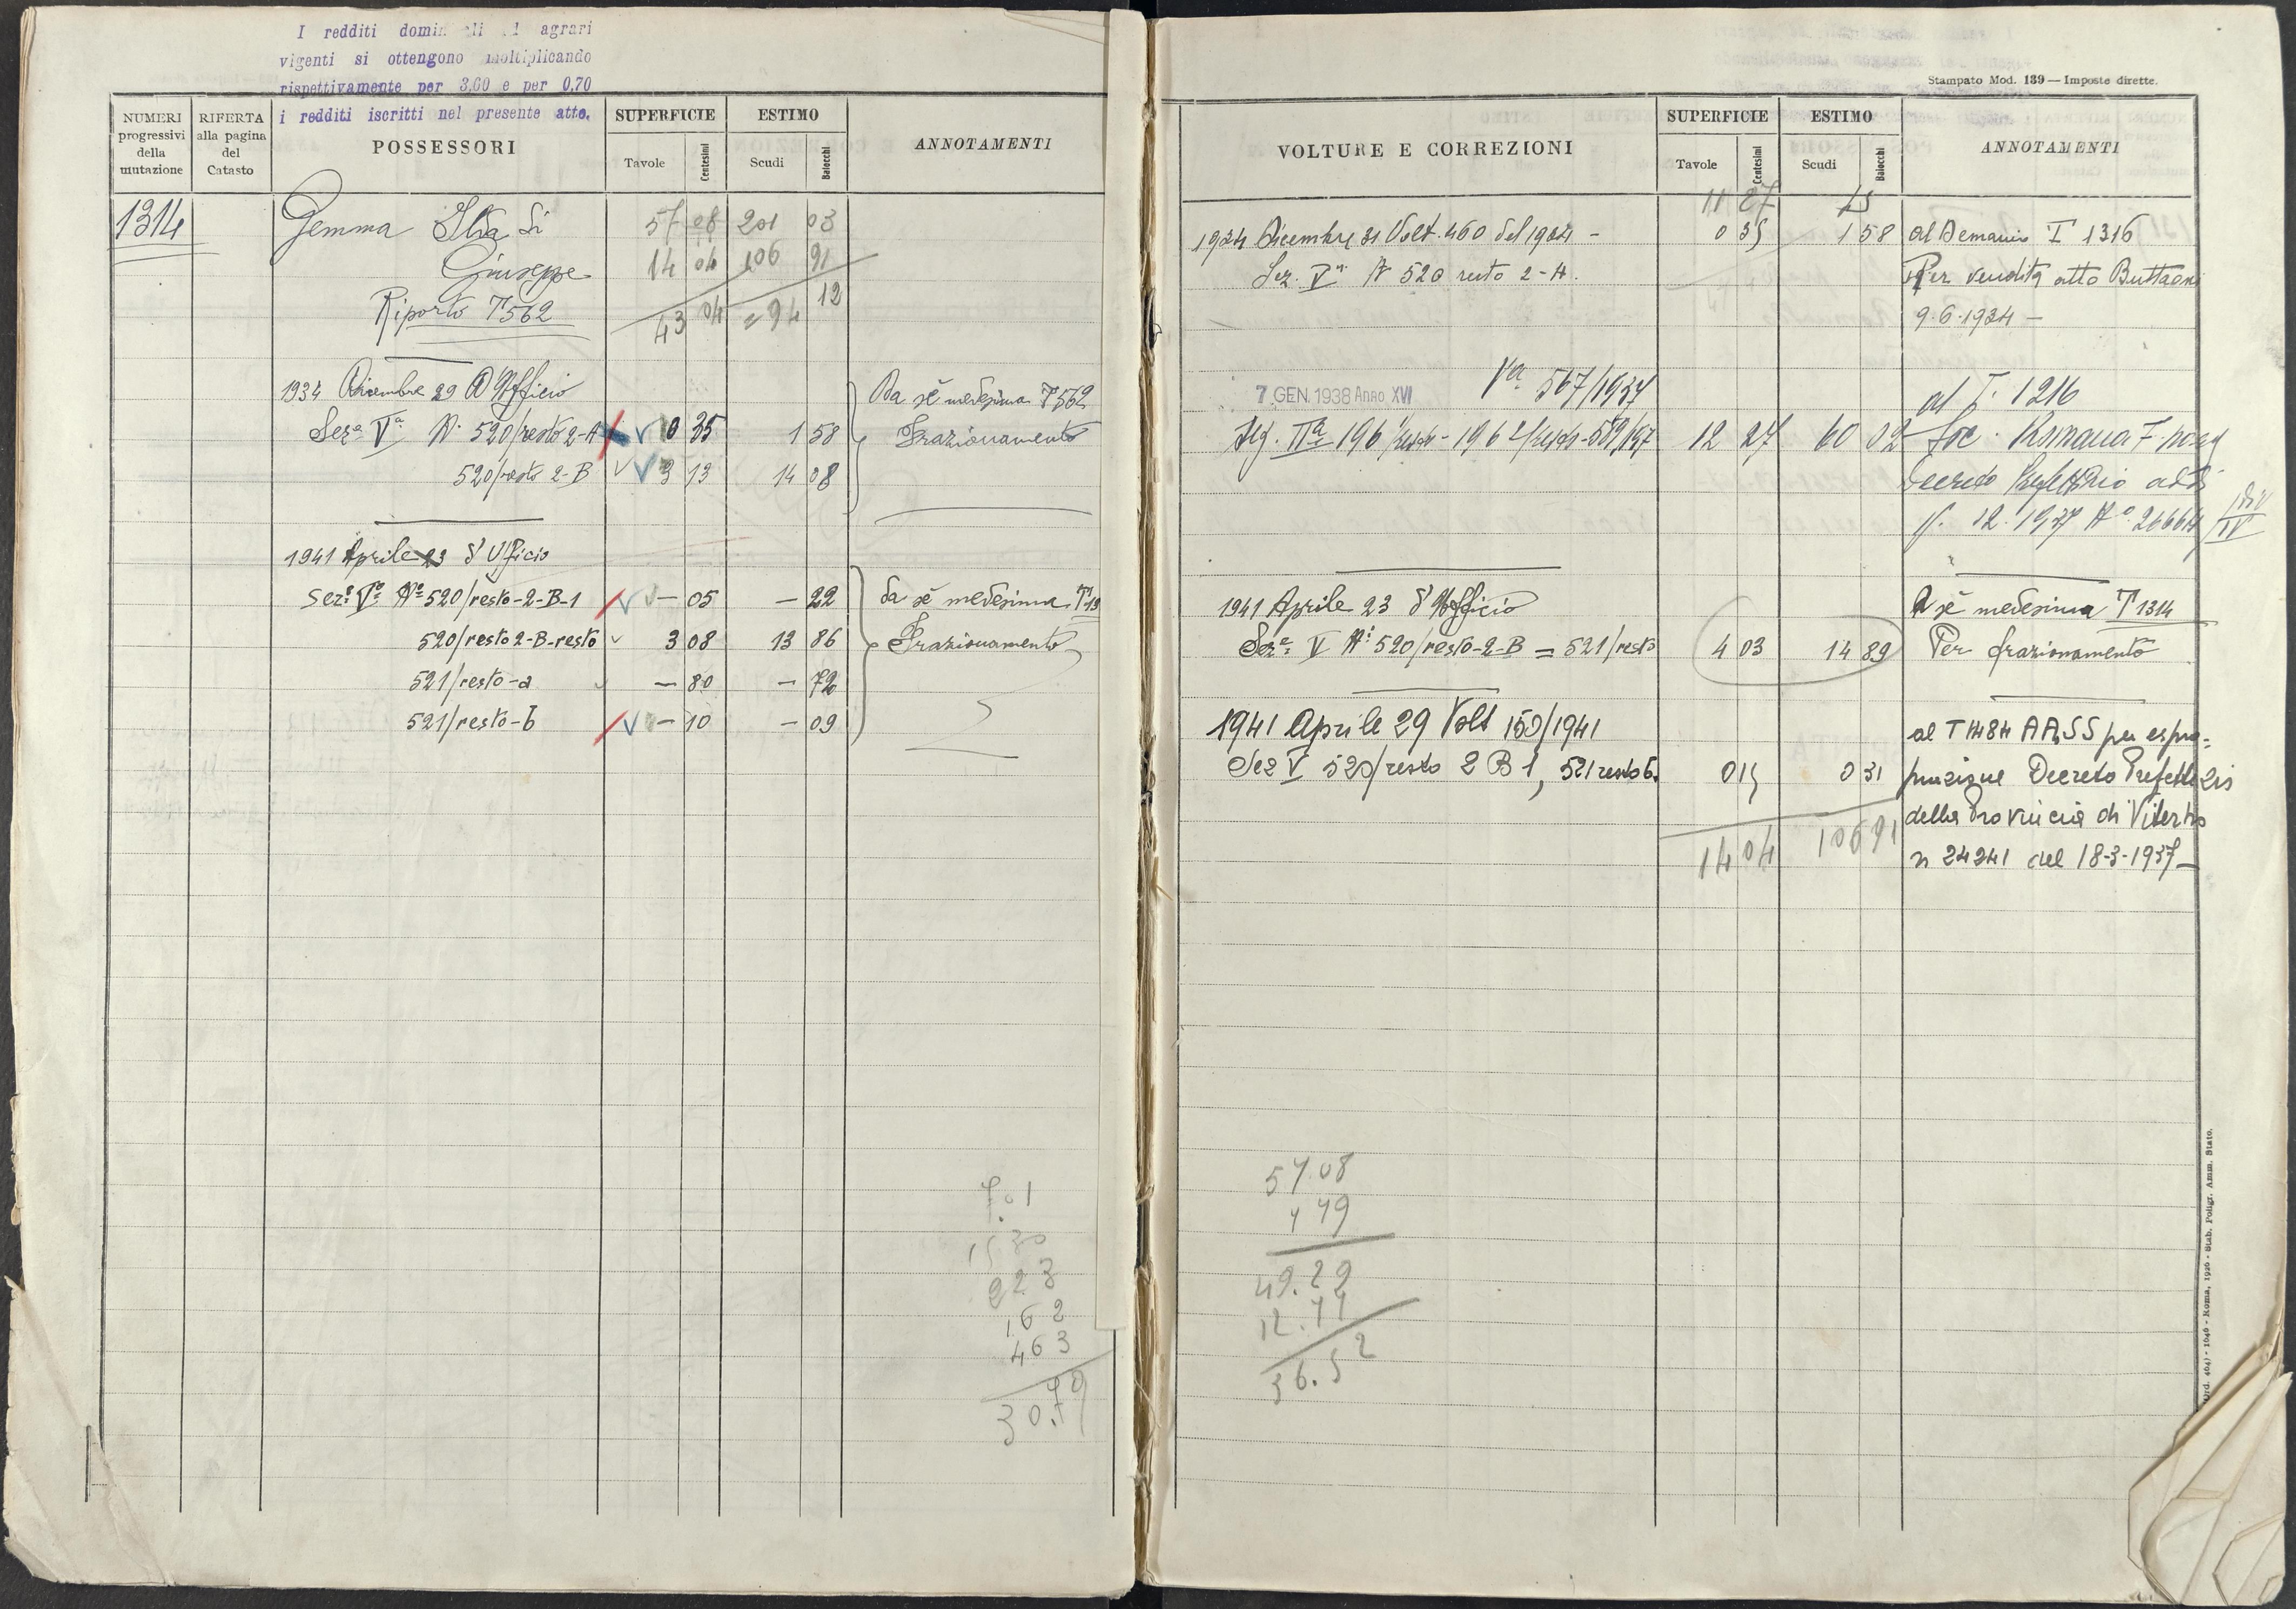 I redditi dominicali ed agrari
vigenti si ottengono moltiplicando
rispettivamente per 3,60 e per 0,70
i redditi iscritti nel presente atto.
NUMERI progressivi della mutazione
RIFERTA alla pagina del Catasto
POSSESSORI
SUPERFICIE
Tavole Centesimi
ESTIMO
Scudi Baiocchi
ANNOTAMENTI
1314 Gemma Ilia di 57 08 201 03
Giuseppe 14 04 106 91
Riporto T 562 43 04 94 12
1934 Dicembre 29 D'Ufficio Da sè medesima T 562
Sez.ª Vª N. 520/resto 2-A 0 35 1 58 Frazionamento
520/resto 2-B 3 13 14 08
1941 Aprile 23 d'Ufficio
Sez.ª Vª Nº 520/resto-2-B-1 — 05 — 22 da sè medesima T 13
520/resto 2-B-resto 3 08 13 86 Frazionamento
521/resto-a — 80 — 72
521/resto-b — 10 — 09
7.01
15 30
223
1.62
463
30.79
Stampato Mod. 139 — Imposte dirette.
VOLTURE E CORREZIONI
SUPERFICIE
Tavole Centesimi
ESTIMO
Scudi Baiocchi
ANNOTAMENTI
11 27
1934 Dicembre 31 Volt. 460 del 1934 - 0 35 1 58 al Demanio T 1316
Sez. Vª N 520 resto 2-A. Per vendita atto Buttaoni
9.6.1934 —
7 GEN. 1938 ANNO XVI Vª 567/1937 al T. 1216
Seg. IIª 196 1/resto - 196 2/resto - 589/197 12 27 60 02 Soc. Romana F.
Decreto Prefettizio
12.1937 Nº 26664
1941 Aprile 23 d'Ufficio A sè medesima T 1314
Sez.ª V Nⁱ 520/resto-2-B = 521/resto 4 03 14 89 Per frazionamento
1941 Aprile 29 Volt 150/1941 al T 1484 AA.SS per espro=
Sez V 520/resto 2 B 1, 521 resto b. 0 15 0 31 priazione Decreto Prefettizio
della Provincia di Viterbo
14 04 106 91
n 24241 del 18-3-1937 —
57.08
7 79
49.29
12.77
36.52
Ord. 404) - 1046 - Roma, 1926 - Stab. Poligr. Amm. Stato.